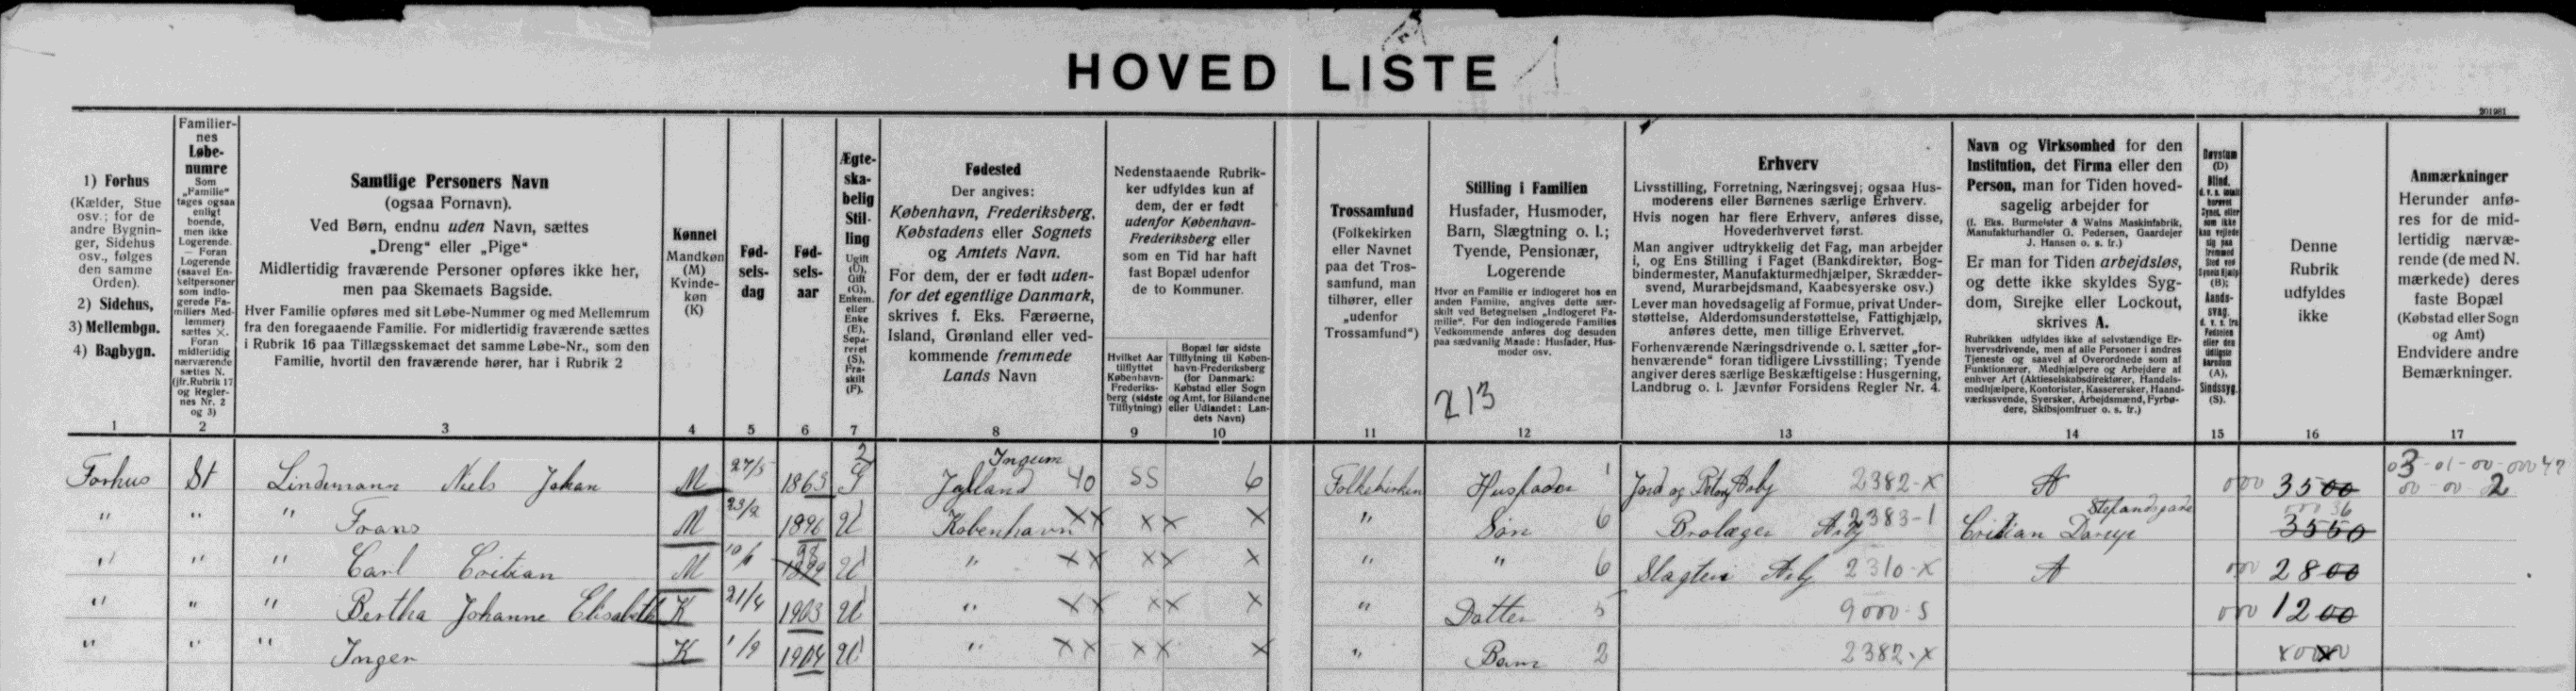 HOVED LISTE 1
201981
1) Forhus
(Kælder, Stue
osv.; for de
andre Bygnin-
ger, Sidehus
osv., følges
den samme
Orden).
2) Sidehus,
3) Mellembgn.
4) Bagbygn.
1
Familier-
nes
Løbe-
numre
Som
„Familie“
tages ogsaa
enligt
boende,
men ikke
Logerende.
— Foran
Logerende
(saavel En-
keltpersoner
som indlo-
gerede Fa-
miliers Med-
lemmer)
sættes X.
Foran
midlertidig
nærværende
sættes N.
(jfr. Rubrik 17
og Regler-
nes Nr. 2
og 3)
2
Samtlige Personers Navn
(ogsaa Fornavn).
Ved Børn, endnu uden Navn, sættes
„Dreng“ eller „Pige“
Midlertidig fraværende Personer opføres ikke her,
men paa Skemaets Bagside.
Hver Familie opføres med sit Løbe-Nummer og med Mellemrum
fra den foregaaende Familie. For midlertidig fraværende sættes
i Rubrik 16 paa Tillægsskemaet det samme Løbe-Nr., som den
Familie, hvortil den fraværende hører, har i Rubrik 2
3
Kønnet
Mandkøn
(M)
Kvinde-
køn
(K)
4
Fød-
sels-
dag
5
Fød-
sels-
aar
6
Ægte-
ska-
belig
Stil-
ling
Ugift
(U),
Gift
(G),
Enkem.
eller
Enke
(E),
Sepa-
reret
(S),
Fra-
skilt
(F).
7
Fødested
Der angives:
København, Frederiksberg,
Købstadens eller Sognets
og Amtets Navn.
For dem, der er født uden-
for det egentlige Danmark,
skrives f. Eks. Færøerne,
Island, Grønland eller ved-
kommende fremmede
Lands Navn
8
Nedenstaaende Rubrik-
ker udfyldes kun af
dem, der er født
udenfor København-
Frederiksberg eller
som en Tid har haft
fast Bopæl udenfor
de to Kommuner.
Hvilket Aar
tilflyttet
København-
Frederiks-
berg (sidste
Tilflytning)
9
Bopæl før sidste
Tilflytning til Køben-
havn-Frederiksberg
(for Danmark:
Købstad eller Sogn
og Amt, for Bilandene
eller Udlandet: Lan-
dets Navn)
10
Trossamfund
(Folkekirken
eller Navnet
paa det Tros-
samfund, man
tilhører, eller
„udenfor
Trossamfund“)
11
Stilling i Familien
Husfader, Husmoder,
Barn, Slægtning o. l.;
Tyende, Pensionær,
Logerende
Hvor en Familie er indlogeret hos en
anden Familie, angives dette sær-
skilt ved Betegnelsen „Indlogeret Fa-
milie“. For den indlogerede Families
Vedkommende anføres dog desuden
paa sædvanlig Maade: Husfader, Hus-
moder osv.
213
12
Erhverv
Livsstilling, Forretning, Næringsvej; ogsaa Hus-
moderens eller Børnenes særlige Erhverv.
Hvis nogen har flere Erhverv, anføres disse,
Hovederhvervet først.
Man angiver udtrykkelig det Fag, man arbejder
i, og Ens Stilling i Faget (Bankdirektør, Bog-
bindermester, Manufakturmedhjælper, Skrædder-
svend, Murarbejdsmand, Kaabesyerske osv.)
Lever man hovedsagelig af Formue, privat Under-
støttelse, Alderdomsunderstøttelse, Fattighjælp,
anføres dette, men tillige Erhvervet.
Forhenværende Næringsdrivende o. l. sætter „for-
henværende“ foran tidligere Livsstilling; Tyende
angiver deres særlige Beskæftigelse: Husgerning,
Landbrug o. l. Jævnfør Forsidens Regler Nr. 4.
13
Navn og Virksomhed for den
Institution, det Firma eller den
Person, man for Tiden hoved-
sagelig arbejder for
(f. Eks. Burmeister & Wains Maskinfabrik,
Manufakturhandler G. Pedersen, Gaardejer
J. Hansen o. s. fr.)
Er man for Tiden arbejdsløs,
og dette ikke skyldes Syg-
dom, Strejke eller Lockout,
skrives A.
Rubrikken udfyldes ikke af selvstændige Er-
hvervsdrivende, men af alle Personer i andres
Tjeneste og saavel af Overordnede som af
Funktionærer, Medhjælpere og Arbejdere af
enhver Art (Aktieselskabsdirektører, Handels-
medhjælpere, Kontorister, Kasserersker, Haand-
værkssvende, Syersker, Arbejdsmænd, Fyrbø-
dere, Skibsjomfruer o. s. fr.)
14
Døvstum
(D)
Blind,
(B);
Aands-
svag,
(A),
Sindssyg
(S).
15
Denne
Rubrik
udfyldes
ikke
16
Anmærkninger
Herunder anfø-
res for de mid-
lertidig nærvæ-
rende (de med N.
mærkede) deres
faste Bopæl
(Købstad eller Sogn
og Amt)
Endvidere andre
Bemærkninger.
17
Forhus St Lindemann Niels Johan M 27/5 1863 2 G Jylland 40 55 6 Folkekirken Husfader 1 Jord og 2382-X A 000 3500 03-01-00-00047
00-00-2
" " " Frans M 23/2 1896 U København XX XX X " Søn 6 Brolægger 2383-1 Stefansgade 3550
" " " Carl Critian M 10/1 98 1899 U " XX XX X " " 6 Slagteri Arbj 2310-X A 000 2800
" " " Bertha Johanne Elisabeth K 21/4 1903 U " XX XX X " Datter 5 9000-5 000 1200
" " " Inger K 1/9 1904 U " XX XX X " Barn 2 2382-X